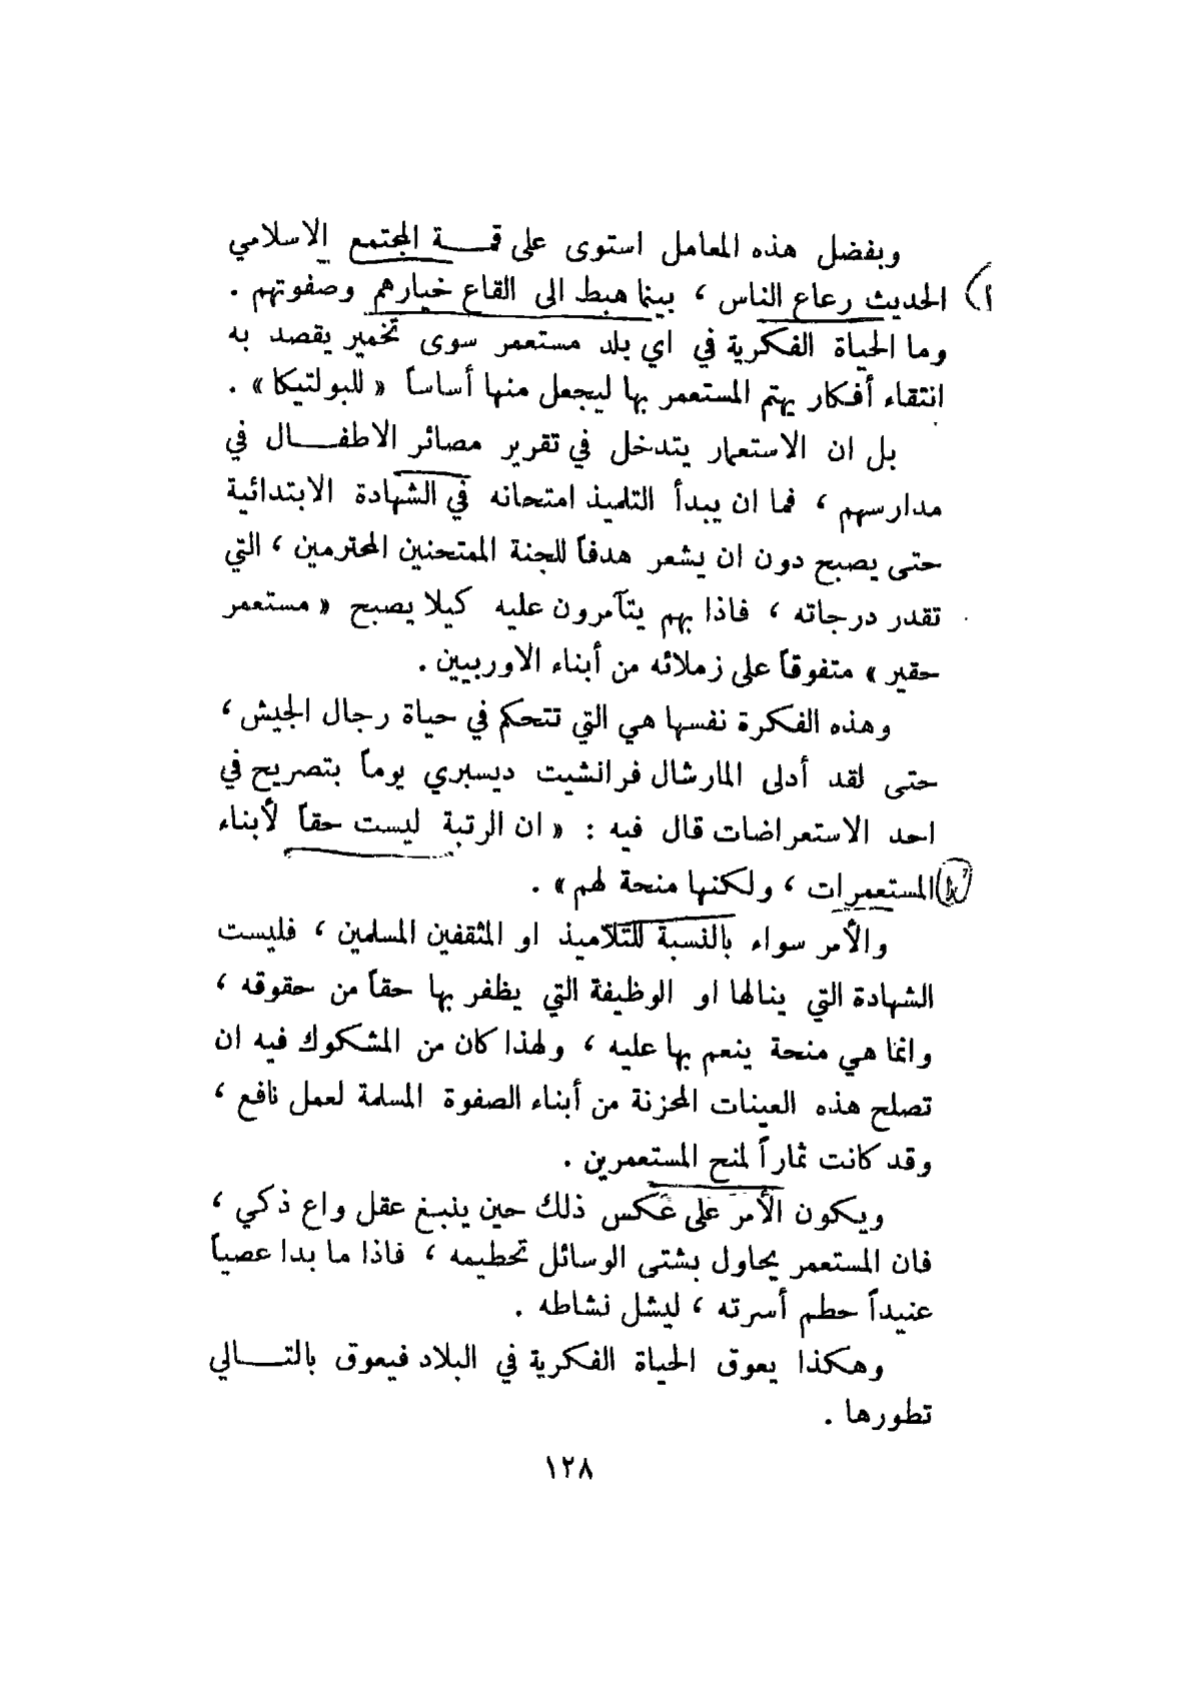 وبفضل هذه المعامل استوى على قمة المجتمع الاسلامي
الحديث رعاع الناس ، بينما هبط الى القاع خيارهم وصفوتهم .
وما الحياة الفكرية في اي بلد مستعمر سوى تخمير يقصد به
انتقاء أفكار يهتم المستعمر بها ليجعل منها أساساً « للبولتيكا » .
بل ان الاستعمار يتدخل في تقرير مصائر الاطفال في
مدارسهم ، فما ان يبدأ التلميذ امتحانه في الشهادة الابتدائية
حتى يصبح دون ان يشعر هدفاً للجنة الممتحنين المحترمين ، التي
تقدر درجاته ، فاذا بهم يتآمرون عليه كيلا يصبح « مستعمر
حقير » متفوقاً على زملائه من أبناء الاوربيين .
وهذه الفكرة نفسها هي التي تتحكم في حياة رجال الجيش ،
حتى لقد أدلى المارشال فرانشيت ديسبري يوماً بتصريح في
احد الاستعراضات قال فيه : « ان الرتبة ليست حقاً لأبناء
المستعمرات ، ولكنها منحة لهم » .
والأمر سواء بالنسبة للتلاميذ او المثقفين المسلمين ، فليست
الشهادة التي ينالها او الوظيفة التي يظفر بها حقاً من حقوقه ،
وانما هي منحة ينعم بها عليه ، ولهذا كان من المشكوك فيه ان
تصلح هذه العينات المحزنة من أبناء الصفوة المسلمة لعمل نافع ،
وقد كانت ثماراً لمنح المستعمرين .
ويكون الأمر على عكس ذلك حين ينبغ عقل واع ذكي ،
فان المستعمر يحاول بشتى الوسائل تحطيمه ، فاذا ما بدا عصياً
عنيداً حطم أسرته ، ليشل نشاطه .
وهكذا يعوق الحياة الفكرية في البلاد فيعوق بالتالي
تطورها .
١٢٨